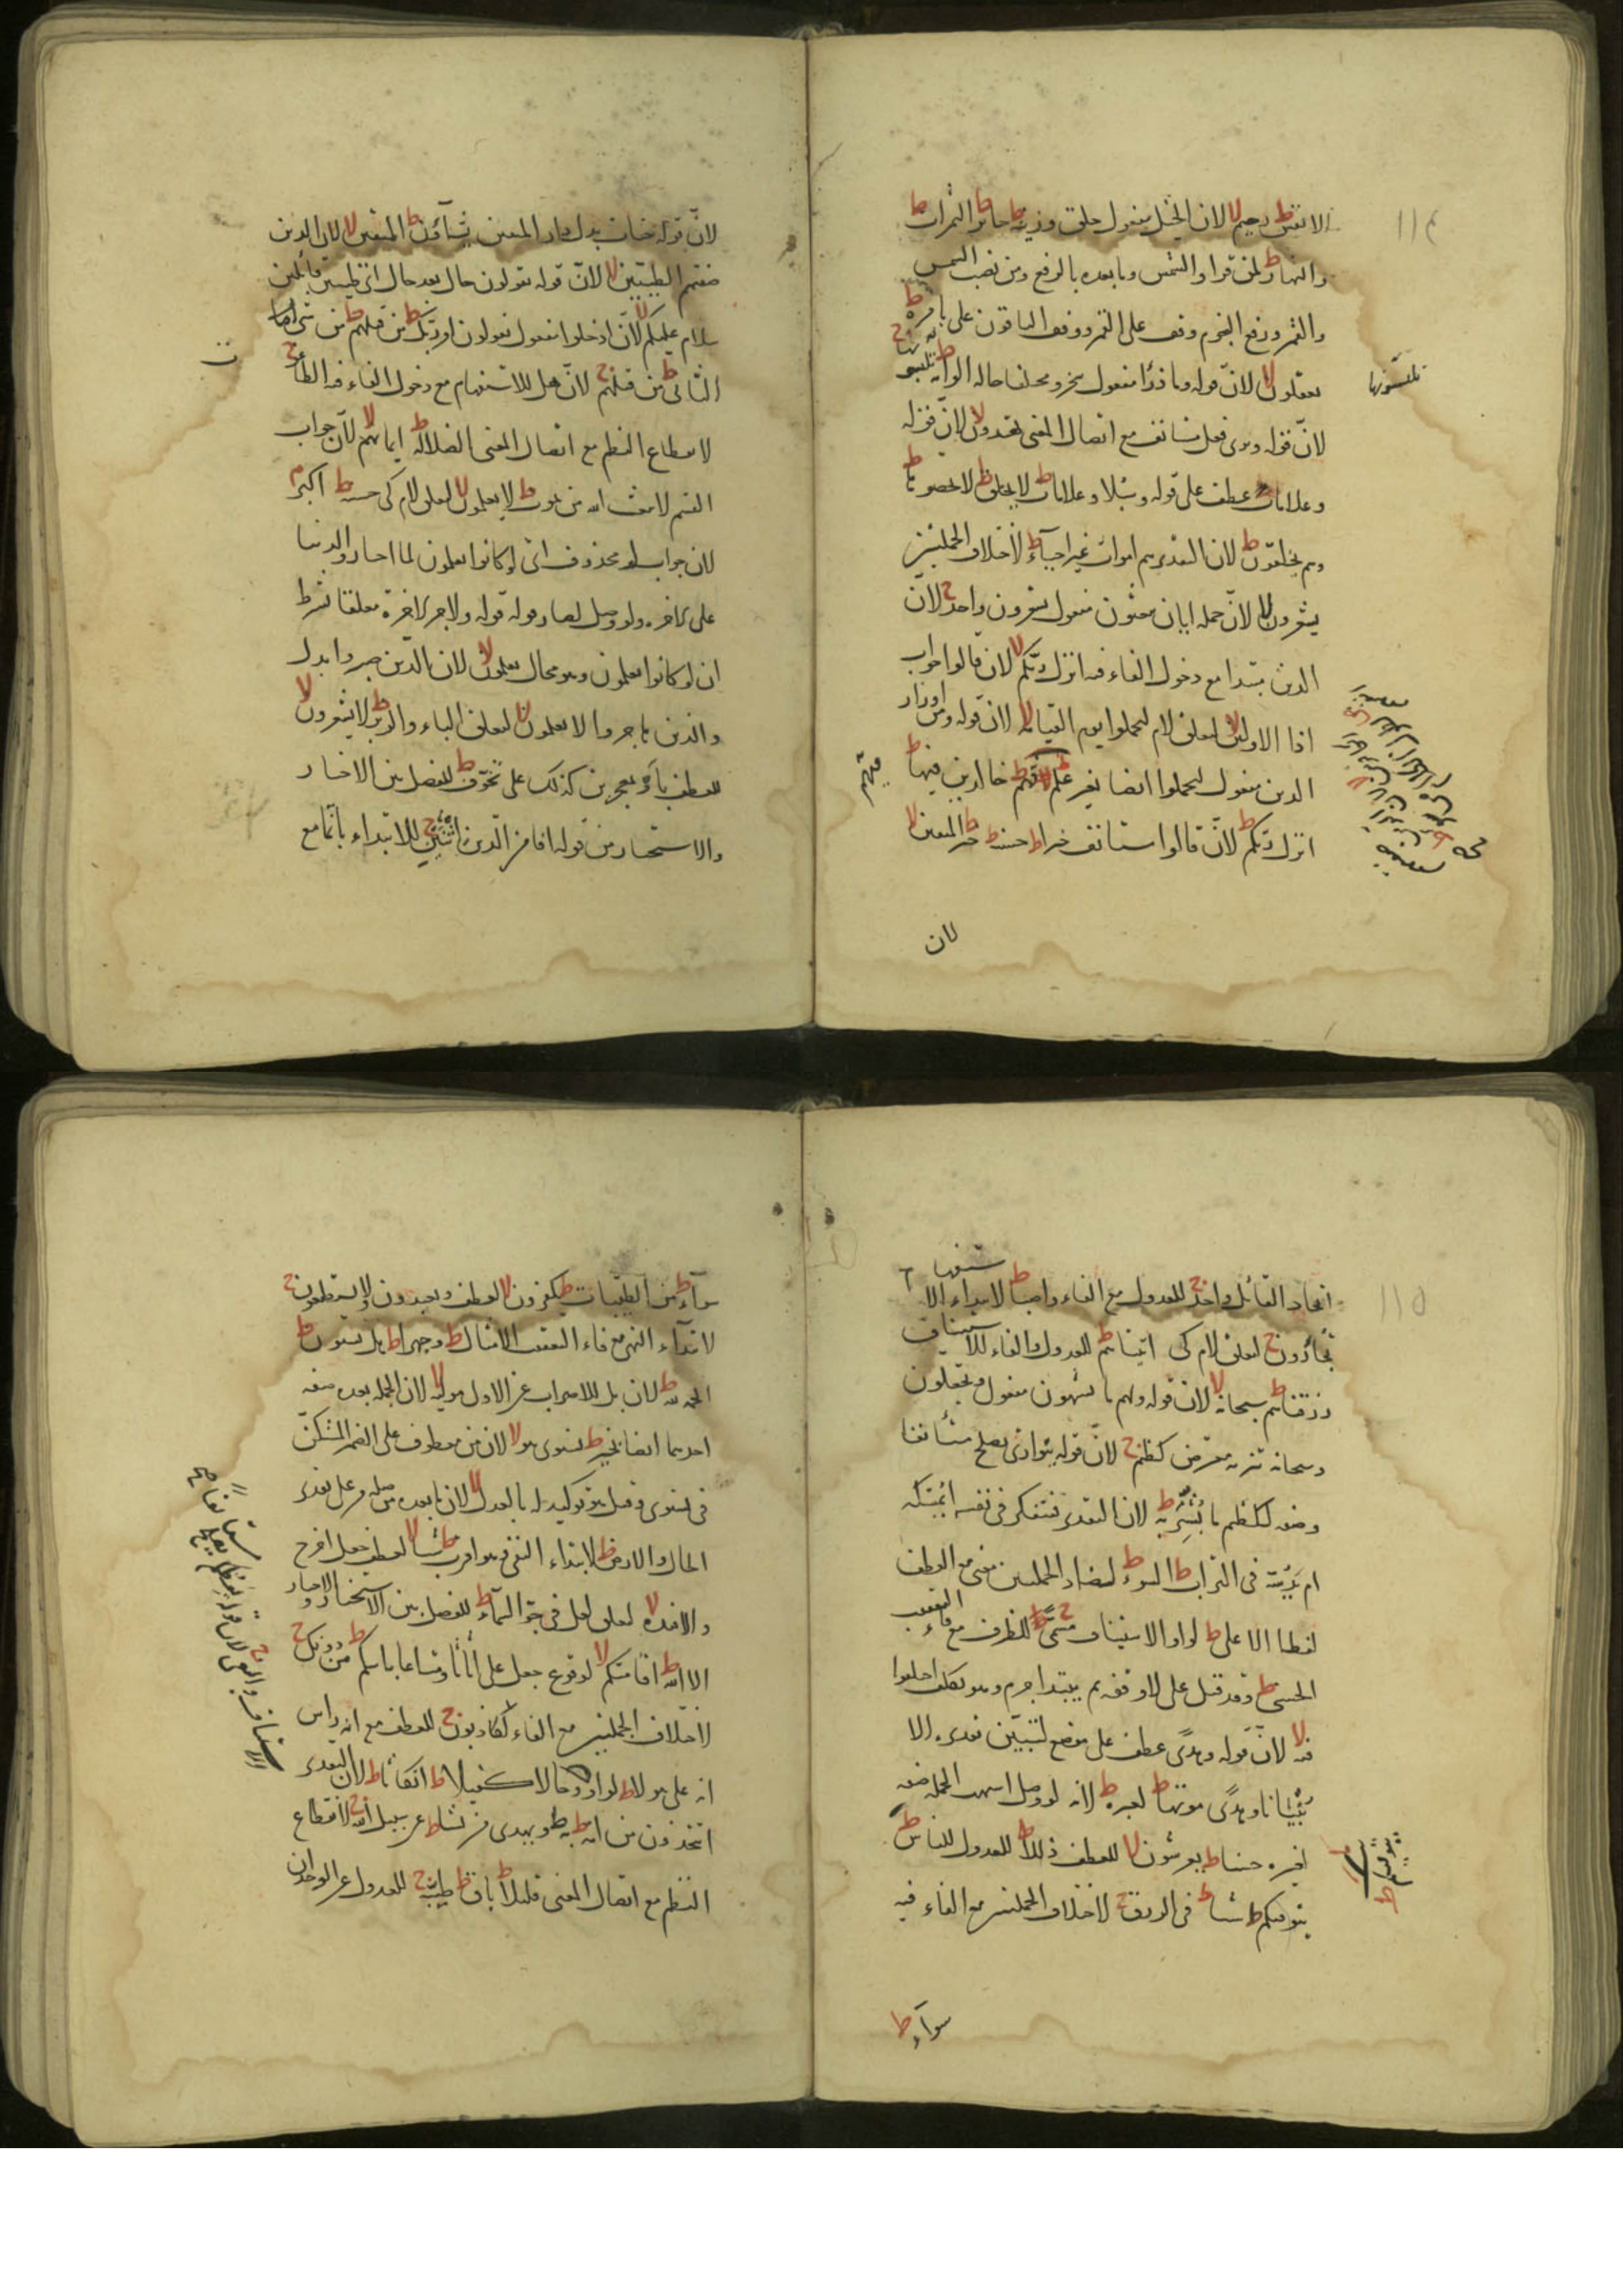 الانفس ط رحيم لا لان الخيل مفعول خلق وزينة ط جائر ط الثمرات ط
والنهار ط لمن قرا والشمس وما بعده بالرفع ومن نصب الشمس
والقمر ورفع النجوم وقف على القمر ووقف الباقون على بامره ط
يعقلون لا لان قوله وما ذرا مفعول سخر ومختلفا حاله الوانه ط
تلبسونها
لان قوله وترى فعل مستانف مع اتصال المعنى تهتدون لا لان قوله
وعلامات عطف على قوله وسبلا وعلامات ط لا يخلق ط لا تحصوها ط
وهم يخلقون ط لان التقدير هم اموات غير احياء ط لاختلاف الجملتين
يشعرون لا لان جمله ايان يبعثون مفعول يشعرون واحد ج لان
الذين مبتدا مع دخول الفاء فيه انزل ربكم لا لان قالوا جواب
اذا الاولين لا لتعلق لام ليحملوا يوم القيامة لا لان قوله ومن اوزار
الذين مفعول ليحملوا ايضا بغير علم ط خالدين فيها ط
انزل ربكم ط لان قالوا مستانف خيرا ط حسنة ط خير ط المتقين لا
لان
لان قوله جنات بدل دار المتقين يشاؤن ط المتقين لا لان الذين
صفتهم الطيبين لا لان قوله يقولون حال بعد حال اى طيبين قائلين
سلام عليكم لا لان ادخلوا مفعول يقولون او ربك ط من قبلهم ط من شى
الثانى ط من قبلهم ج لان هل للاستفهام مع دخول الفاء فيه الطاغوت ج
لانقطاع النظم مع اتصال المعنى الضلالة ط ايمانهم لا لان جواب
القسم لا يبعث الله من يموت ط لا يعلمون لا لتعلق لام كى حسنة ط اكبر م
لان جواب لو محذوف اى لو كانوا يعلمون لما اختاروا الدنيا
على الاخره ولو وصل لصار قوله ولاجر الاخرة معلقا بشرط
ان لو كانوا يعلمون وهو محال يعلمون لا لان الذين صبروا بدل
والذين هاجروا لا يعلمون لا لتعلق الباء والزبر ط لا يشعرون لا
للعطف باو بمعجزين كذلك على تخوف ط للفصل بين الاخبار
والاستخبار من قوله افامن الذين اثنين ج للابتداء بانما مع
اتحاد القائل واحد ج للعدول مع الفاء واصبا ط لابتداء الاستفهام
تجأرون ج لتعلق لام كى اتيناهم ط للعدول والفاء للاستيناف
رزقناهم ط سبحانه لا لان قوله ولهم ما يشتهون مفعول ويجعلون
وسبحانه تنزيه معترض كظيم ج لان قوله يتوارى يصلح مستأنفا
وصفه لكظيم ما بشر به ط لان التقدير فيتفكر فى نفسه ايمسكه
ام يدسه فى التراب ط السوء ط لتضاد الجملتين معنى مع العطف
لفظا الاعلى ط لواو الاستيناف مسمى ج للظرف مع فاء التعقيب
الحسنى ط وقد قيل على لا وقفه ثم يبتدا جرم وهو تكلف اختلفوا
فيه لا لان قوله وهدى عطف على موضع لتبين تقديره الا
تبيانا وهدى موتها ط لعبرة ط لانه لو وصل اشبهت الجمله صفه
لعبره حسنا ط يعرشون لا للعطف ذللا ط للعدول للناس ط
يتوفكم ط شيا ط فى الرزق ج لاختلاف الجملتين مع الفاء فيه
سواء ط
سواء ط من الطيبات ط يكفرون لا للعطف ويعبدون ولا يستطيعون ج
لابتداء النهى مع فاء التعقيب الامثال ط وجهرا ط هل يستوون ط
الحمد لله ط لان بل للاضراب عن الاول موليه لا لان الجمله بعده صفه
احدهما ايضا بخير ط يستوى هو لا لان من معطوف على الضمير المستكن
فى يستوى وهو توكيد له بالعدل لا لان ما بعده من صلة من على تقدير
الحال والارض ط لابتداء النفى هو اقرب ط شيا لا لعطف جعل اخرج
والافئدة لا لتعلق لعل فى جو السماء ط للفصل بين الاستخبار والاخبار
الا الله ط اقامتكم لا لوقوع جعل على اثاثا ومتاعا باسكم ط من دونك ج
لاختلاف الجملتين مع الفاء لكاذبون ج للعطف مع انه راس
اية على هولاء ط لواو وحالا كفيلا ط انكاثا ط لان التقدير
اتتخذون من امة ط به ط ويهدى من يشاء ط عن سبيل الله ج لانقطاع
النظم مع اتصال المعنى قليلا ط باق ط طيبة ج للعدول عن الوحدان